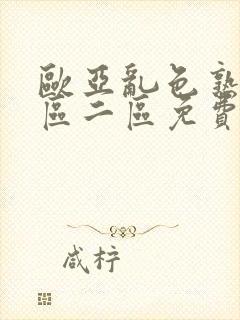 歐亞亂色熟
區二區免費
咸柠